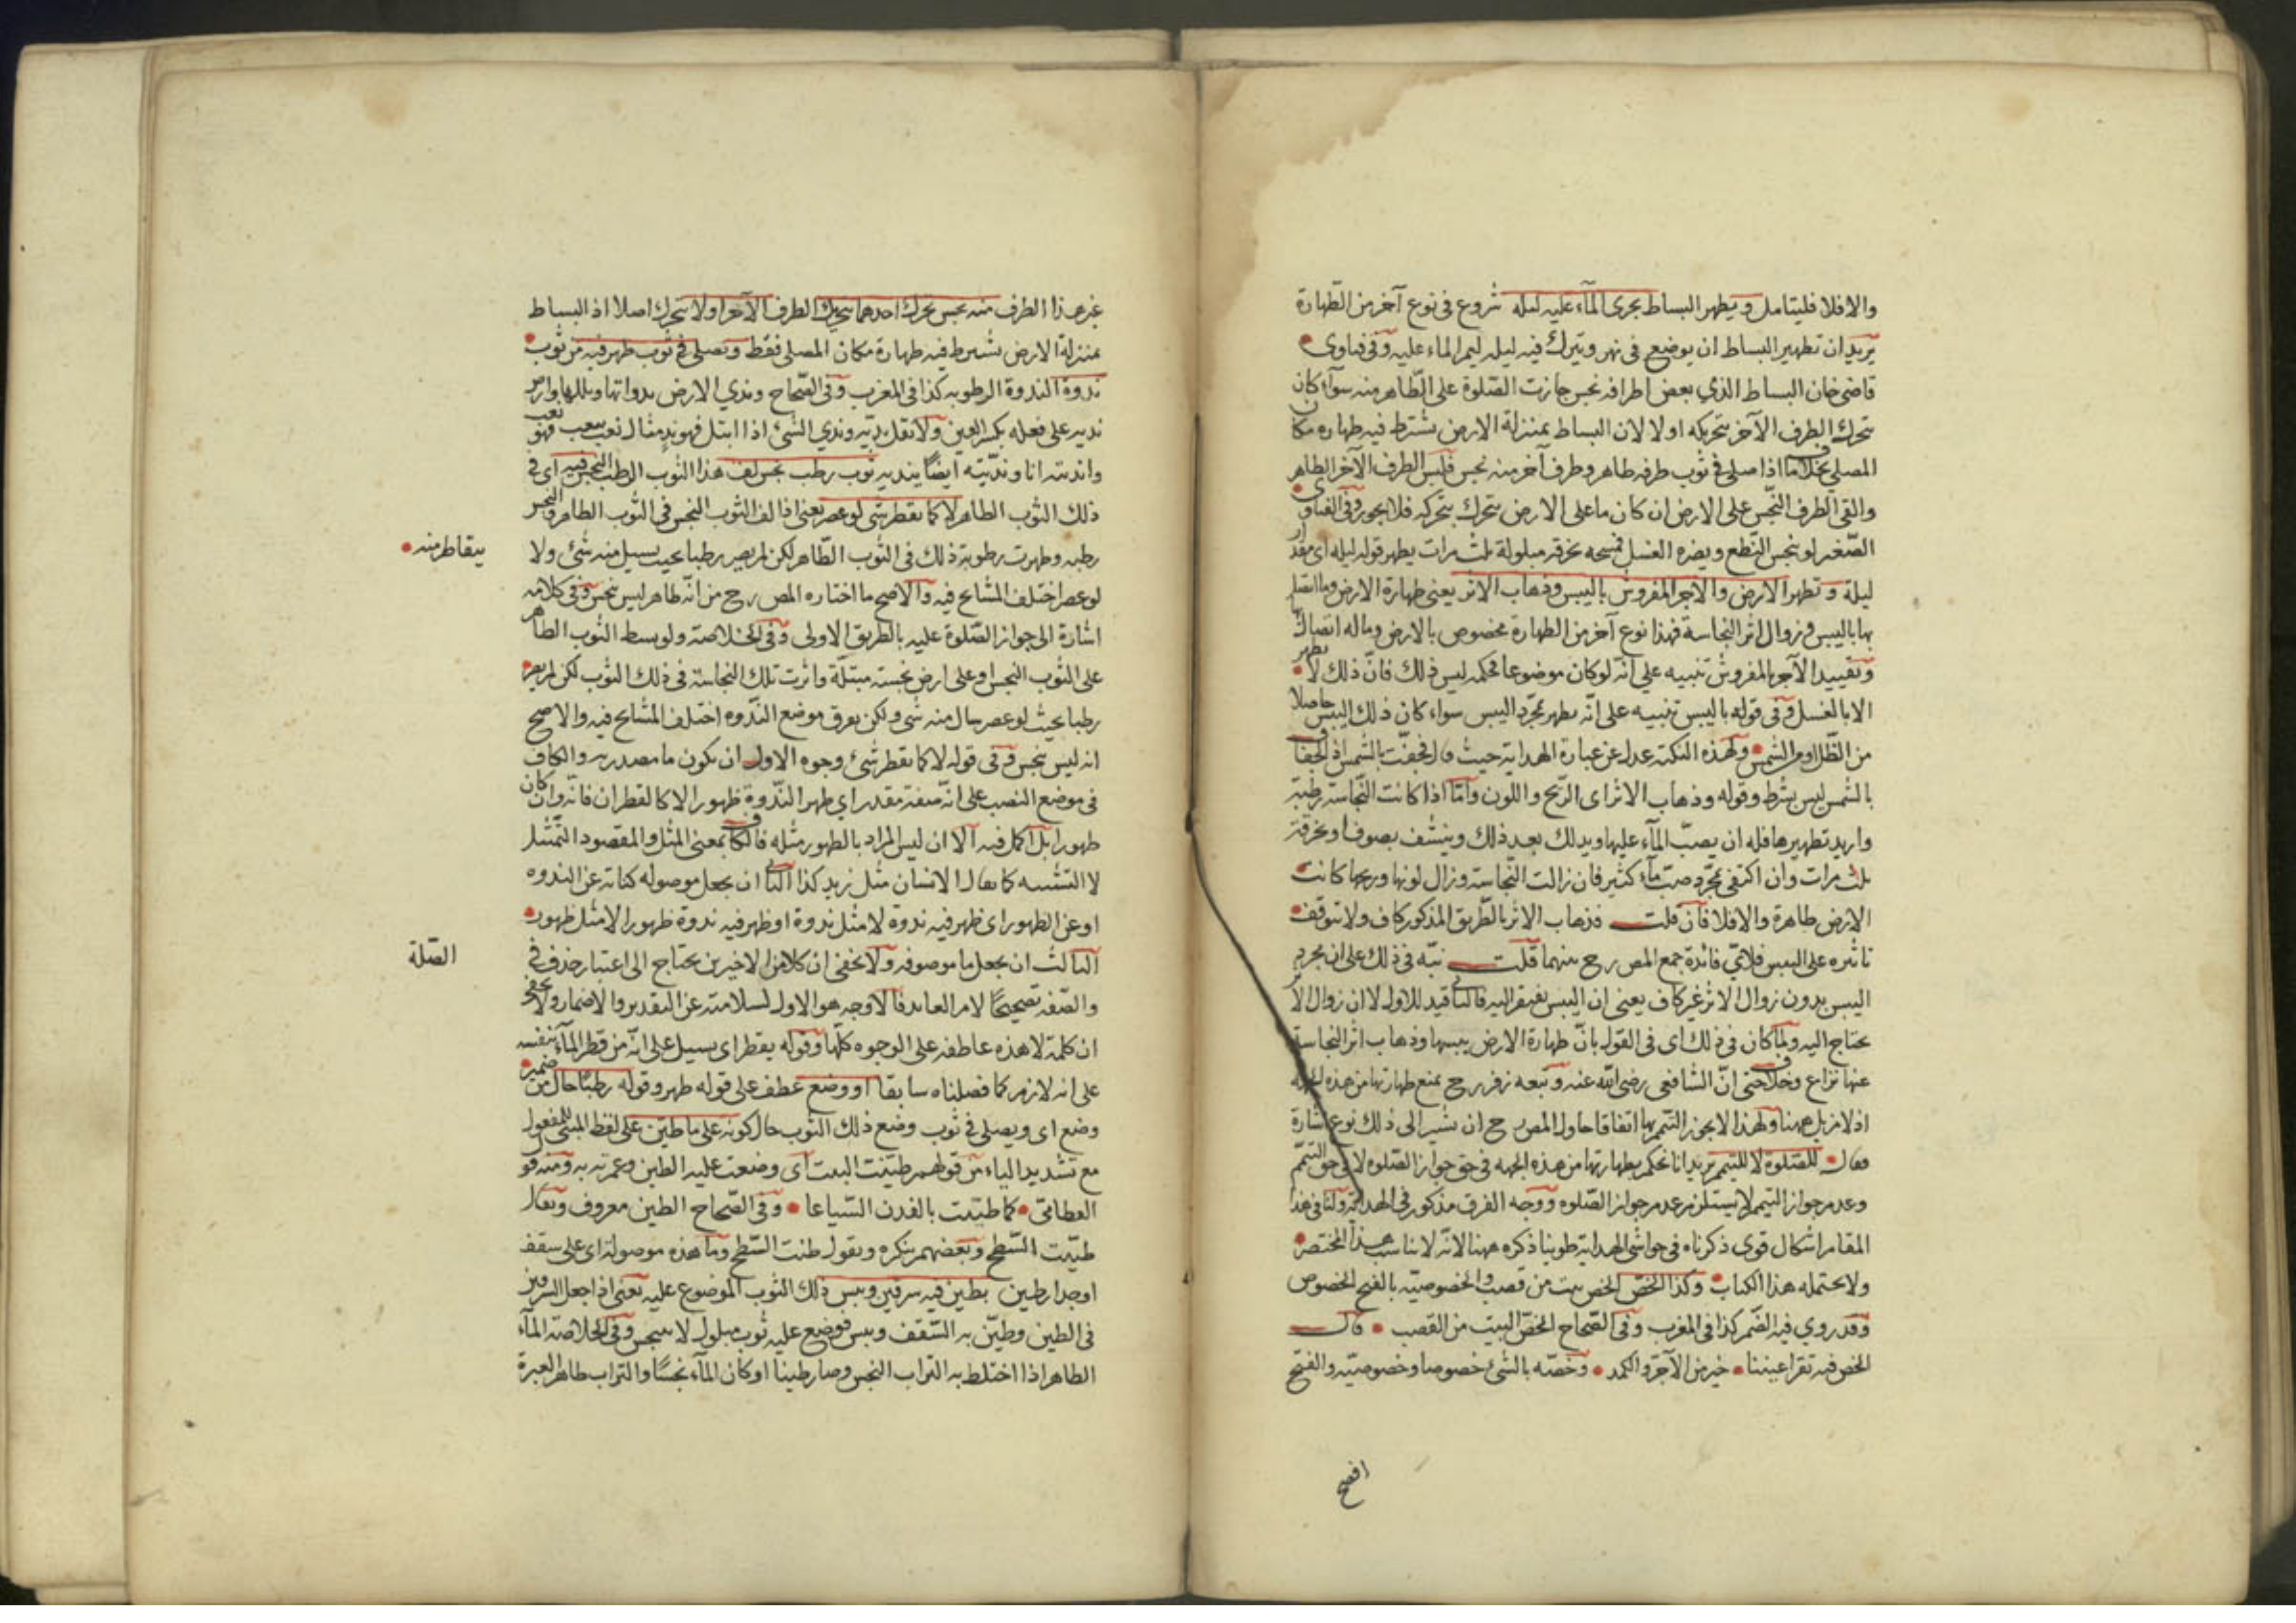 والا فلا فليتامل ويطهر البساط بجرى المآء عليه ليله شروع فى نوع آخر من الطهارة
يريد ان تطهير البساط ان يوضع فى نهر ويترك فيه ليله ليمر الماء عليه وفى فتاوى
قاضى خان البساط الذي بعض اطرافه نجس جازت الصلوة على الطاهر منه سوآء كان
تتحرك الطرف الآخر بتحريكه اولا لان البساط بمنزلة الارض تشترط فيه طهاره مكان
المصلي بخلاف ما اذا صلى فى ثوب طرفه طاهر وطرف آخر منه نجس فلبس الطرف الآخر الطاهر
والقى الطرف النجس على الارض ان كان ما على الارض يتحرك بتحركه فلا يجوز وفى الفتاوى
الصغير لو نجس النطع ويضره الغسل فمسحه بخرقه مبلولة ثلث مرات يطهر قوله ليله اى مقدار
ليلة وتطهر الارض والآجر المفروش باليبس وذهاب الاثر يعنى طهارة الارض وما اتصل
بها باليبس وزوال اثر النجاسة فهذا نوع آخر من الطهارة مخصوص بالارض وماله اتصال
وتقييد الآجر بالمفروش تنبيه على انه لو كان موضوعا فحكمه ليس ذلك فان ذلك لا يطهر
الا بالغسل وفى قوله باليبس تنبيه على انه يطهر بمجرد اليبس سواء كان ذلك اليبس حاصلا
من الظل او من الشمس ولهذه النكته عدل عن عبارة الهدايه حيث قال فجفت بالشمس اذ الجفاف
بالشمس ليس بشرط وقوله وذهاب الاثر اى الريح واللون وامّا اذا كانت النجاسة رطبة
واريد تطهيرها فله ان يصب المآء عليها ويدلك بعد ذلك وينشف بصوف او بخرقة
ثلث مرات وان اكتفى بمجرد صب مآء كثير فان زالت النجاسة وزال لونها وريحها كانت
الارض طاهرة والا فلا فان قلت فذهاب الاثر بالطريق المذكور كاف ولا تتوقف
تاثيره على اليبس فلاي فائدة جمع المص رح بينهما قلت نبه فى ذلك على ان مجرد
اليبس بدون زوال الاثر غير كاف يعنى ان اليبس يفتقر اليه فالثانى قيد للاول لا ان زوال الاثر
يحتاج اليه ولما كان فى ذلك اى فى القول بان طهارة الارض بيبسها وذهاب اثر النجاسة
عنها نزاع وخلاف حتى ان الشافعى رضى الله عنه وتبعه زفر رح يمنع طهارتها من هذه الجهة
اذ لا مزيل ههنا ولهذا لا يجوز التيمم بها اتفاقا حاول المص رح ان يشير الى ذلك نوع اشارة
فقال للصلوة لا للتيمم يريد انا نحكم بطهارتها من هذه الجهه فى حق جواز الصلوه لا فى حق التيمم
وعدم جواز التيمم لا يستلزم عدم جواز الصلوه ووجه الفرق مذكور فى الهداية ولنا فى هذا
المقام اشكال قوى ذكرناه فى حواشى الهدايه طوينا ذكره ههنا لانه لا يناسب هذا المختصر
ولا يحتمله هذا الكتاب وكذا الخص الخص بيت من قصب والخصوصيه بالفتح الخصوص
وقد روي فيه الضم كذا فى المغرب وفى الصحاح الخص البيت من القصب قال
الخص فيه تقر اعيننا خير من الآجر والكمد وخصه بالشئ خصوصا وخصوصية والفتح
افصح
غير هذا الطرف منه نجس تحرك احدهما بتحرك الطرف الآخر او لا يتحرك اصلا اذ البساط
بمنزلة الارض يشترط فيه طهارة مكان المصلى فقط ويصلى فى ثوب طهر فيه من ثوب
ندوة الندوة الرطوبه كذا فى المغرب وفى الصحاح وندي الارض نداوتها وبللها وارض
نديه على فعله بكسر العين ولا تقل نديه وندي الشئ اذا ابتل فهو ند مثال تعب يتعب فهو تعب
واندىته انا وندّيته ايضا يندىه ثوب رطب نجس لف هذا الثوب الرطب النجس فيه اى فى
ذلك الثوب الطاهر لا كما يقطر شئ لو عصر يعنى اذا لف الثوب النجس فى الثوب الطاهر والنجس
رطبه وظهرت رطوبة ذلك فى الثوب الطاهر لكن لم يصر رطبا بحيث يسيل منه شئ ولا
يتقاطر منه
لو عصر اختلف المشايخ فيه والاصح ما اختاره المص رح من انه طاهر ليس بنجس وفى كلامه
اشارة الى جواز الصلوة عليه بالطريق الاولى وفى الخلاصه ولو بسط الثوب الطاهر
على الثوب النجس او على ارض نجسة مبتلة واثرت تلك النجاسة فى ذلك الثوب لكن لم يصر
رطبا بحيث لو عصر سال منه شئ ولكن يعرق موضع الندوه اختلف المشايخ فيه والاصح
انه ليس بنجس وفى قوله لا كما يقطر شئ وجوه الاول ان يكون ما مصدريه والكاف
فى موضع النصب على انه صفة مقدر اي ظهر الندوة ظهورا لا كالقطران فانه وان كان
ظهورا بل اكمل فيه الا ان ليس المراد بالظهور مثله فالكاف بمعنى المثل والمقصود التمثيل
لا التشبيه كما يقال الانسان مثل زيد كذا الثانى ان يجعل موصوله كنايه عن الندوه
او عن الظهور اى ظهر فيه ندوة لا مثل ندوة او ظهر فيه ندوة ظهورا لا مثل ظهور
الثالث ان يجعل ما موصوفه ولا يخفى ان كلا من الاخيرين يحتاج الى اعتبار حذف فى
الصلة
والصفه تصحيحا لامر العايد فالاوجه هو الاول لسلامته عن التقدير والاضمار ولا يخفى
ان كلمة لا هذه عاطفه على الوجوه كلها وقوله يقطر اى يسيل على انه من قطر المآء بنفسه
على انه لازم كما فصلناه سابقا او وضع عطف على قوله ظهر وقوله رطبا حال من ضمير
وضع اى ويصلى فى ثوب وضع ذلك الثوب حال كونه على ما طين على لفظ المبنى للمفعول
مع تشديد الياء من قولهم طينت البيت اى وضعت عليه الطين وعمرته به ومنه قول
القطامى كما طينت بالفدن السياعا وفى الصحاح الطين معروف ويقال
طينت السطح وبعضهم ينكره ويقول طنت السطح وما هذه موصولة اى على سقف
او جدار طين بطين فيه سرقين ويبس ذلك الثوب الموضوع عليه يعنى اذا جعل السرقين
فى الطين وطيّن به السقف ويبس فوضع عليه ثوب مبلول لا ينجس وفى الخلاصة المآء
الطاهر اذا اختلط به التراب النجس وصار طينا او كان المآء نجسا والتراب طاهر العبرة